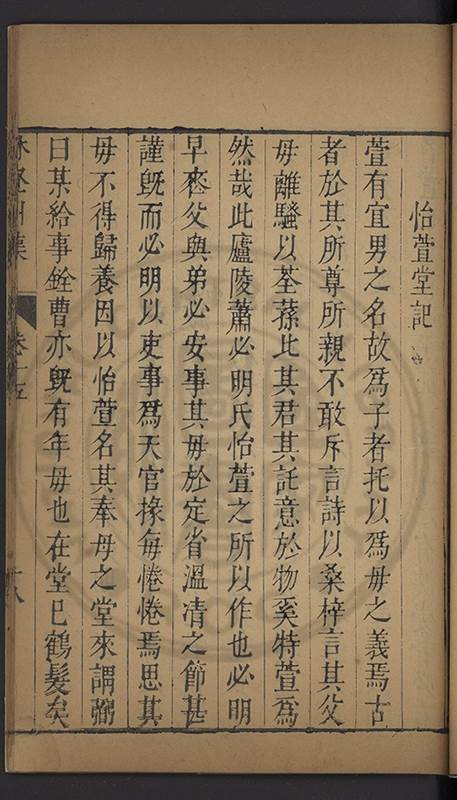 怡萱堂記
萱有宜男之名故爲子者托以爲毋之義焉古
者於其所尊所親不敢斥言詩以桑梓言其父
毋離騷以荃蓀比其君其託意於物奚特萱爲
然哉此廬陵蕭必明氏怡萱之所以作也必明
早䘮父與弟必安事其毋於定省溫凊之節甚
謹旣而必明以吏事爲天官掾每惓惓焉思其
毋不得歸養因以怡萱名其奉毋之堂來謂弼
曰某給事銓曹亦旣有年毋也在堂已鶴髮矣
州集 卷十五 十八